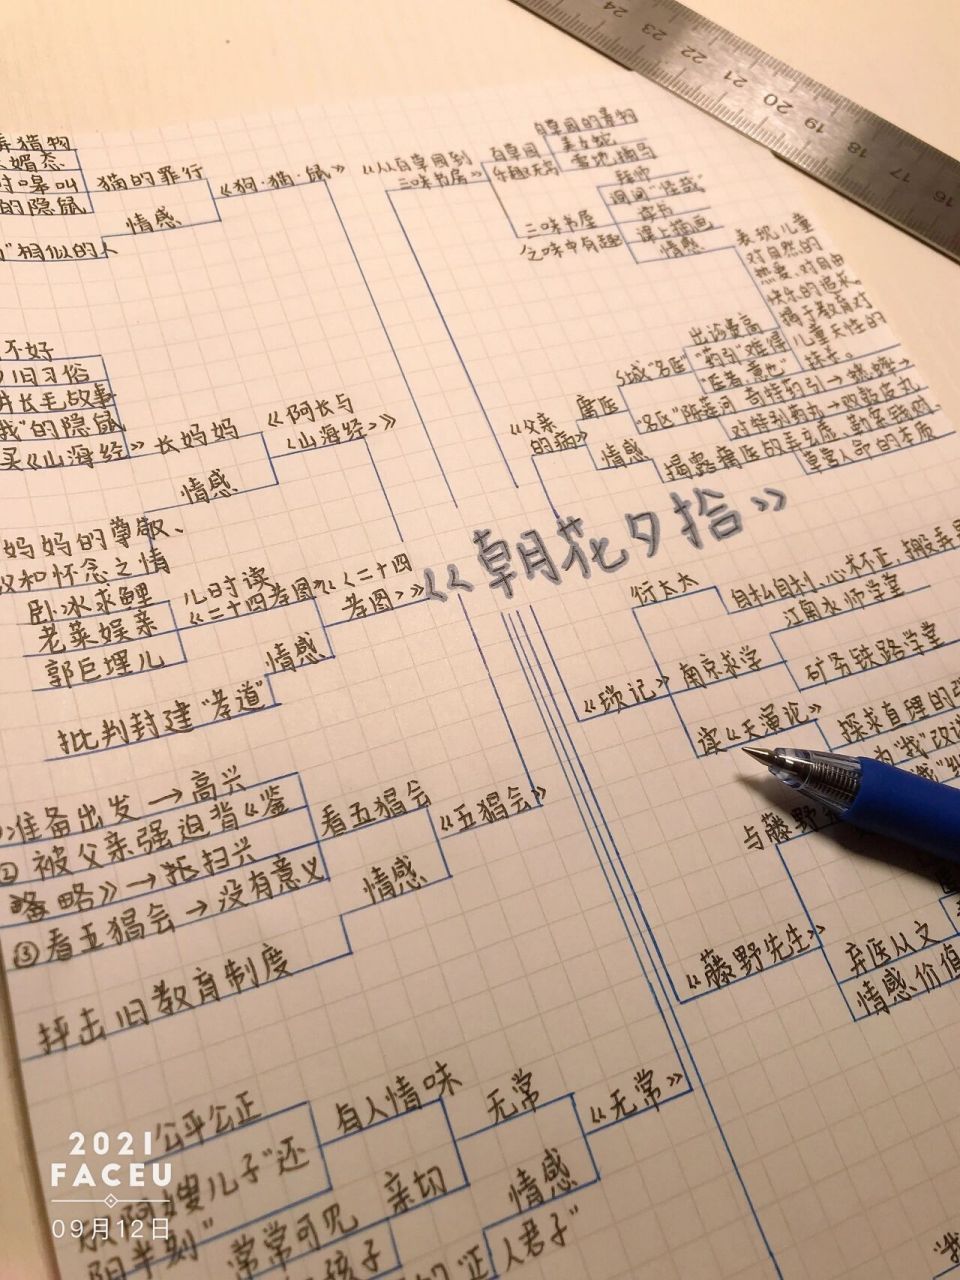 24
23
22
21
20
19
18
17
16
猎物
媚态
嗥叫
的隐鼠
猫的罪行
情感
《狗·猫·鼠》
"相似的人
《从百草园到
三味书屋》
百草园
乐趣无穷
百草园的景物
美女蛇
雪地捕鸟
三味书屋
乏味中有趣
拜师
询问"怪哉"
读书
课上描画
情感
表现儿童
对自然的
热爱,对自由
快乐的追求,
儿童天性的
抹杀。
不好
旧习俗
讲长毛故事
我"的隐鼠
买《山海经》
长妈妈
情感
《阿长与
《山海经》》
妈妈的尊敬、
和怀念之情
《父亲
的病》
庸医
S城"名医"
出诊费高
"药引"难得
"医者,意也"
"名医"陈莲河
奇特药引→蟋蟀
对特别丸药→败鼓皮丸
情感
揭露庸医的弄玄虚、勒索钱财、
草菅人命的本质
《朝花夕拾》
卧冰求鲤
老莱娱亲
郭巨埋儿
儿时读
《二十四孝图》
《二十四
孝图》
情感
批判封建"孝道"
衍太太
自私自利、心术不正,搬弄是
《琐记》
南京求学
江南水师学堂
矿务铁路学堂
读《天演论》
探求真理的
准备出发→高兴
②被父亲强迫背《鉴
略》→极扫兴
③看五猖会→没有意义
看五猖会
情感
《五猖会》
抨击旧教育制度
与藤野
《藤野先生》
弃医从文
情感价值
公平公正
有人情味
无常
《无常》
阿嫂儿子"还
阳半刻"
亲切
常常可见
孩子
情感
"正人君子"
"我
2021
FACEU
09月12日